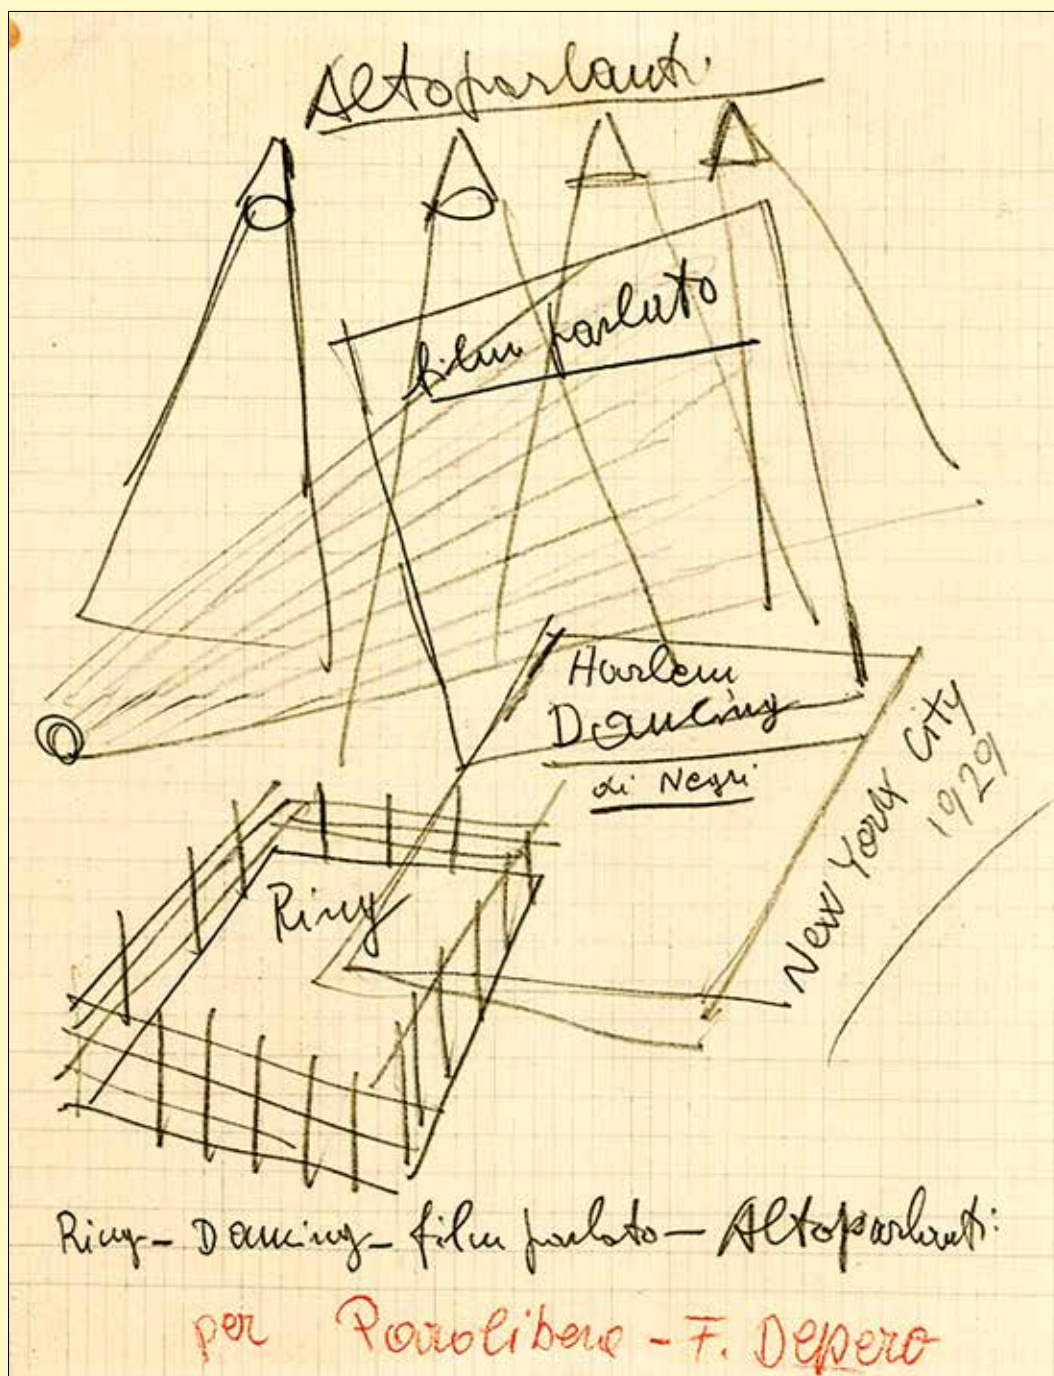 Altoparlanti
film parlato
Harlem
Dancing
di Negri
New York City
1929
Ring
Ring - Dancing - film parlato - Altoparlanti
per Parolibera - F. Depero